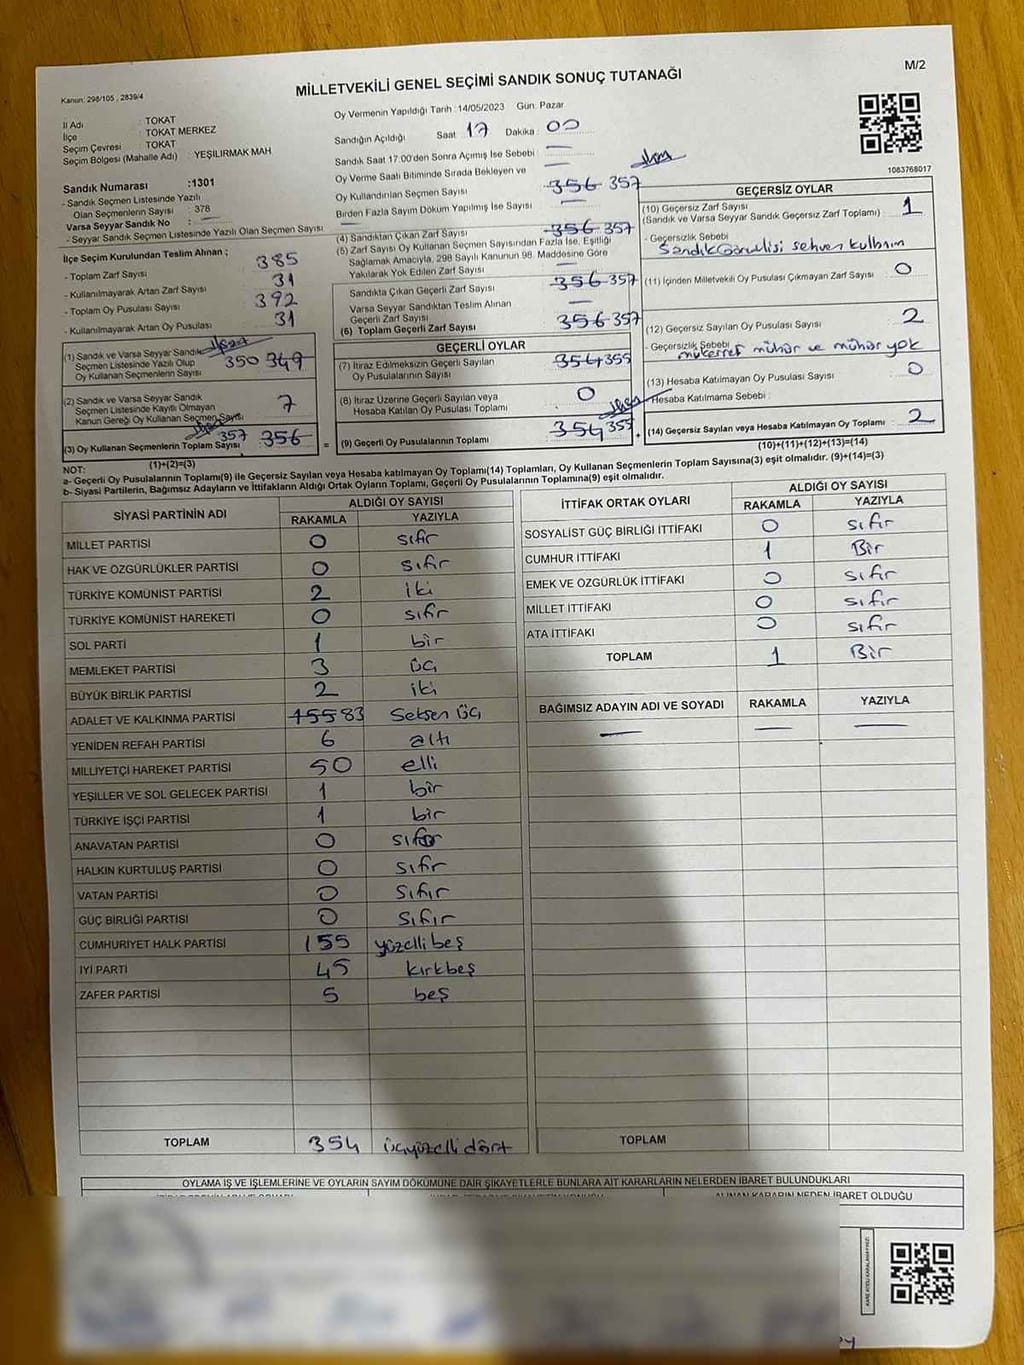 M/2
MİLLETVEKİLİ GENEL SEÇİMİ SANDIK SONUÇ TUTANAĞI
Kanun: 298/105 , 2839/4
İl Adı : TOKAT
İlçe : TOKAT MERKEZ
Seçim Çevresi : TOKAT
Seçim Bölgesi (Mahalle Adı) : YEŞİLIRMAK MAH
Sandık Numarası :1301
- Sandık Seçmen Listesinde Yazılı
Olan Seçmenlerin Sayısı : 378
Varsa Seyyar Sandık No : —
- Seyyar Sandık Seçmen Listesinde Yazılı Olan Seçmen Sayısı
İlçe Seçim Kurulundan Teslim Alınan ;
- Toplam Zarf Sayısı 385
- Kullanılmayarak Artan Zarf Sayısı 31
- Toplam Oy Pusulası Sayısı 392
- Kullanılmayarak Artan Oy Pusulası 31
(1) Sandık ve Varsa Seyyar Sandık
Seçmen Listesinde Yazılı Olup
Oy Kullanan Seçmenlerin Sayısı 350 349
(2) Sandık ve Varsa Seyyar Sandık
Seçmen Listesinde Kayıtlı Olmayan
Kanun Gereği Oy Kullanan Seçmen Sayısı 7
(3) Oy Kullanan Seçmenlerin Toplam Sayısı 357 356
(1)+(2)=(3)
Oy Vermenin Yapıldığı Tarih : 14/05/2023 Gün: Pazar
Sandığın Açıldığı Saat 17 Dakika : 00
Sandık Saat 17:00'den Sonra Açımış İse Sebebi : —
Oy Verme Saati Bitiminde Sırada Bekleyen ve
Oy Kullandırılan Seçmen Sayısı 356 357
Birden Fazla Sayım Döküm Yapılmış İse Sayısı —
(4) Sandıktan Çıkan Zarf Sayısı 356 357
(5) Zarf Sayısı Oy Kullanan Seçmen Sayısından Fazla İse, Eşitliği
Sağlamak Amacıyla, 298 Sayılı Kanunun 98. Maddesine Göre
Yakılarak Yok Edilen Zarf Sayısı —
Sandıkta Çıkan Geçerli Zarf Sayısı 356 357
Varsa Seyyar Sandıktan Teslim Alınan
Geçerli Zarf Sayısı —
(6) Toplam Geçerli Zarf Sayısı 356 357
GEÇERLİ OYLAR
(7) İtiraz Edilmeksizin Geçerli Sayılan
Oy Pusulalarının Sayısı 354 355
(8) İtiraz Üzerine Geçerli Sayılan veya
Hesaba Katılan Oy Pusulası Toplamı 0
= (9) Geçerli Oy Pusulalarının Toplamı 354 355
1083768017
GEÇERSİZ OYLAR
(10) Geçersiz Zarf Sayısı
(Sandık ve Varsa Seyyar Sandık Geçersiz Zarf Toplamı) : 1
- Geçersizlik Sebebi
Sandık Görevlisi sehven kullanım
(11) İçinden Milletvekili Oy Pusulası Çıkmayan Zarf Sayısı : 0
(12) Geçersiz Sayılan Oy Pusulası Sayısı : 2
- Geçersizlik Sebebi
mükerrer mühür ve mühür yok
(13) Hesaba Katılmayan Oy Pusulası Sayısı : 0
Hesaba Katılmama Sebebi :
+ (14) Geçersiz Sayılan veya Hesaba Katılmayan Oy Toplamı : 2
(10)+(11)+(12)+(13)=(14)
NOT:
a- Geçerli Oy Pusulalarının Toplamı(9) ile Geçersiz Sayılan veya Hesaba katılmayan Oy Toplamı(14) Toplamları, Oy Kullanan Seçmenlerin Toplam Sayısına(3) eşit olmalıdır. (9)+(14)=(3)
b- Siyasi Partilerin, Bağımsız Adayların ve İttifakların Aldığı Ortak Oyların Toplamı, Geçerli Oy Pusulalarının Toplamına(9) eşit olmalıdır.
SİYASİ PARTİNİN ADI ALDIĞI OY SAYISI
RAKAMLA YAZIYLA
MİLLET PARTİSİ 0 sıfır
HAK VE ÖZGÜRLÜKLER PARTİSİ 0 sıfır
TÜRKİYE KOMÜNİST PARTİSİ 2 iki
TÜRKİYE KOMÜNİST HAREKETİ 0 sıfır
SOL PARTİ 1 bir
MEMLEKET PARTİSİ 3 üç
BÜYÜK BİRLİK PARTİSİ 2 iki
ADALET VE KALKINMA PARTİSİ 155 83 Seksen üç
YENİDEN REFAH PARTİSİ 6 altı
MİLLİYETÇİ HAREKET PARTİSİ 50 elli
YEŞİLLER VE SOL GELECEK PARTİSİ 1 bir
TÜRKİYE İŞÇİ PARTİSİ 1 bir
ANAVATAN PARTİSİ 0 sıfır
HALKIN KURTULUŞ PARTİSİ 0 sıfır
VATAN PARTİSİ 0 sıfır
GÜÇ BİRLİĞİ PARTİSİ 0 sıfır
CUMHURİYET HALK PARTİSİ 155 yüzelli beş
İYİ PARTİ 45 kırkbeş
ZAFER PARTİSİ 5 beş
TOPLAM 354 üçyüzelli dört
İTTİFAK ORTAK OYLARI ALDIĞI OY SAYISI
RAKAMLA YAZIYLA
SOSYALİST GÜÇ BİRLİĞİ İTTİFAKI 0 sıfır
CUMHUR İTTİFAKI 1 Bir
EMEK VE ÖZGÜRLÜK İTTİFAKI 0 sıfır
MİLLET İTTİFAKI 0 sıfır
ATA İTTİFAKI 0 sıfır
TOPLAM 1 Bir
BAĞIMSIZ ADAYIN ADI VE SOYADI RAKAMLA YAZIYLA
— — —
TOPLAM
OYLAMA İŞ VE İŞLEMLERİNE VE OYLARIN SAYIM DÖKÜMÜNE DAİR ŞİKAYETLERLE BUNLARA AİT KARARLARIN NELERDEN İBARET BULUNDUKLARI
ALINAN KARARIN NEDEN İBARET OLDUĞU